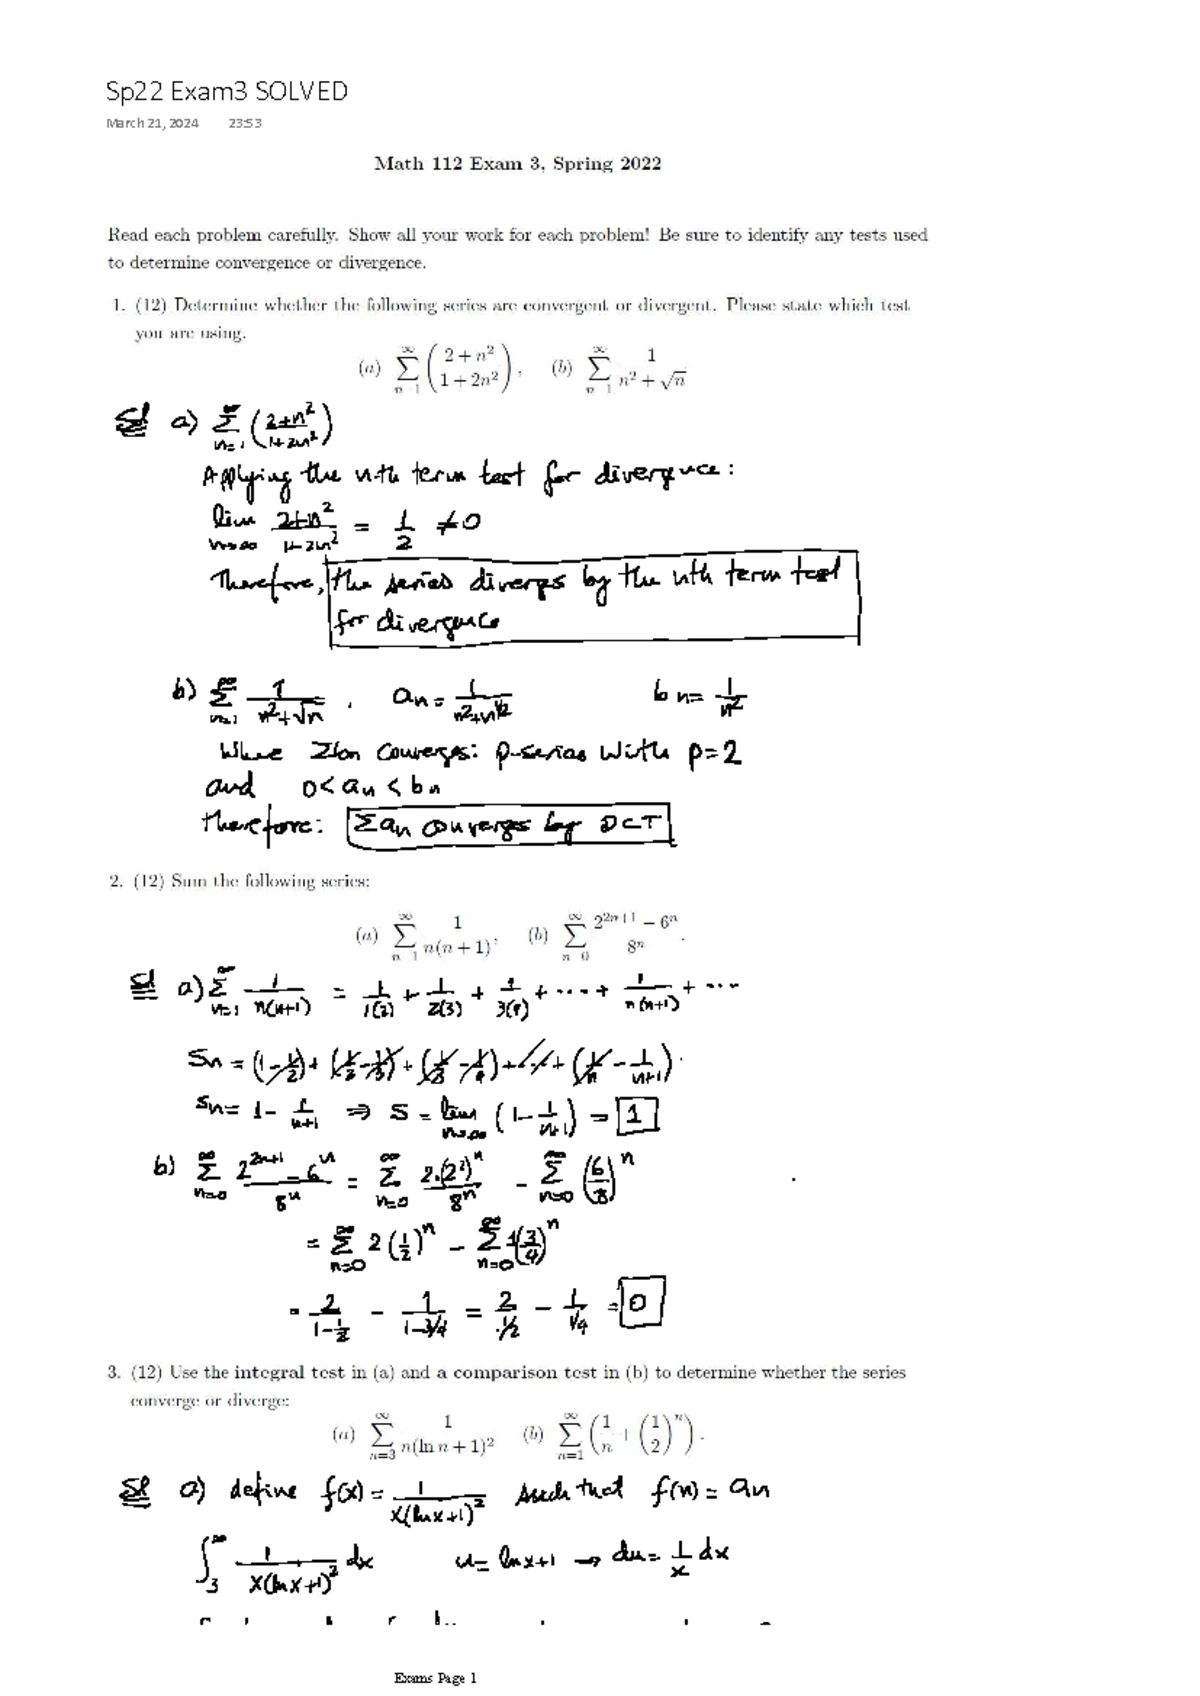 Sp22 Exam3 SOLVED
March 21, 2024 23:53
Math 112 Exam 3, Spring 2022
Read each problem carefully. Show all your work for each problem! Be sure to identify any tests used
to determine convergence or divergence.
1. (12) Determine whether the following series are convergent or divergent. Please state which test
you are using.
(a) ∑_{n=1}^{∞} ((2 + n²)/(1 + 2n²)), (b) ∑_{n=1}^{∞} 1/(n² + √n)
Sol a) ∑_{n=1}^{∞} ((2+n²)/(1+2n²))
Applying the nth term test for divergence:
lim_{n→∞} (2+n²)/(1+2n²) = 1/2 ≠ 0
Therefore, the series diverges by the nth term test
for divergence
b) ∑_{n=1}^{∞} 1/(n²+√n) . an = 1/(n²+n^{1/2}) bn = 1/n²
Where Σbn converges: p-series with p=2
and 0 < an < bn
therefore: Σan converges by DCT
2. (12) Sum the following series:
(a) ∑_{n=1}^{∞} 1/(n(n + 1)), (b) ∑_{n=0}^{∞} (2^{2n+1} − 6^n)/8^n.
Sol a) ∑_{n=1}^{∞} 1/(n(n+1)) = 1/(1(2)) + 1/(2(3)) + 1/(3(4)) + ... + 1/(n(n+1)) + ...
Sn = (1 − 1/2) + (1/2 − 1/3) + (1/3 − 1/4) + ... + (1/n − 1/(n+1))
Sn = 1 − 1/(n+1) ⇒ S = lim_{n→∞} (1 − 1/(n+1)) = 1
b) ∑_{n=0}^{∞} (2^{2n+1} − 6^n)/8^n = ∑_{n=0}^{∞} 2·(2²)^n/8^n − ∑_{n=0}^{∞} (6/8)^n
= ∑_{n=0}^{∞} 2(1/2)^n − ∑_{n=0}^{∞} 1(3/4)^n
= 2/(1−1/2) − 1/(1−3/4) = 2/(1/2) − 1/(1/4) = 0
3. (12) Use the integral test in (a) and a comparison test in (b) to determine whether the series
converge or diverge:
(a) ∑_{n=3}^{∞} 1/(n(ln n + 1)²) (b) ∑_{n=1}^{∞} (1/n + (1/2)^n).
Sol a) define f(x) = 1/(x(ln x+1)²) such that f(n) = an
∫_3^∞ 1/(x(ln x+1)²) dx u = ln x+1 → du = 1/x dx
Exams Page 1